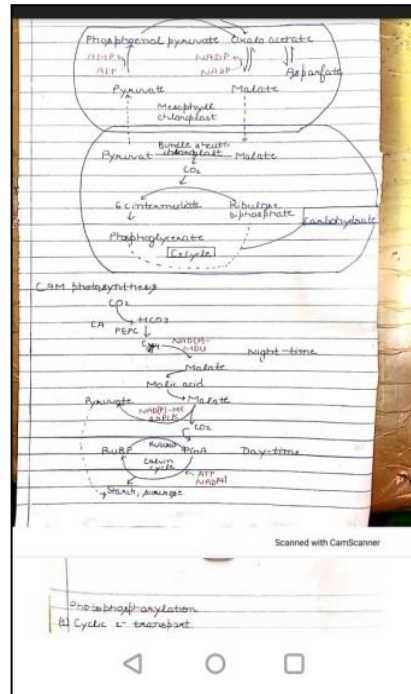 Phosphoenol pyruvate Oxalo acetate
AMP NADP
ATP NADP Asparfate
Pyruvate Malate
Mesophyll
chloroplast
Bundle sheath
chloroplast
Pyruvat Malate
CO2
6c intermediate Ribulose
biphosphate Carbohydrate
Phosphoglycerate
C3 cycle
CAM photosynthesis
CO2
CA HCO3
PEPC
NAD(P)-
MDH Night-time
Malate
Malic acid
Pyruvate Malate
NAD(P)-ME
CO2
Rubisco
RuBP PGA Day-time
Calvin
cycle ATP
NADPH
Starch, sucrose
Scanned with CamScanner
Photophosphorylation
(1) Cyclic e- transport